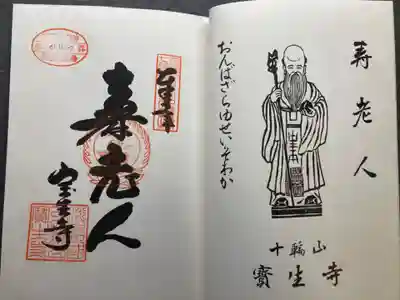 寿老人
おんばざらゆせいそわか
十輪山
寳生寺
奉拝
寿老人
宝生寺